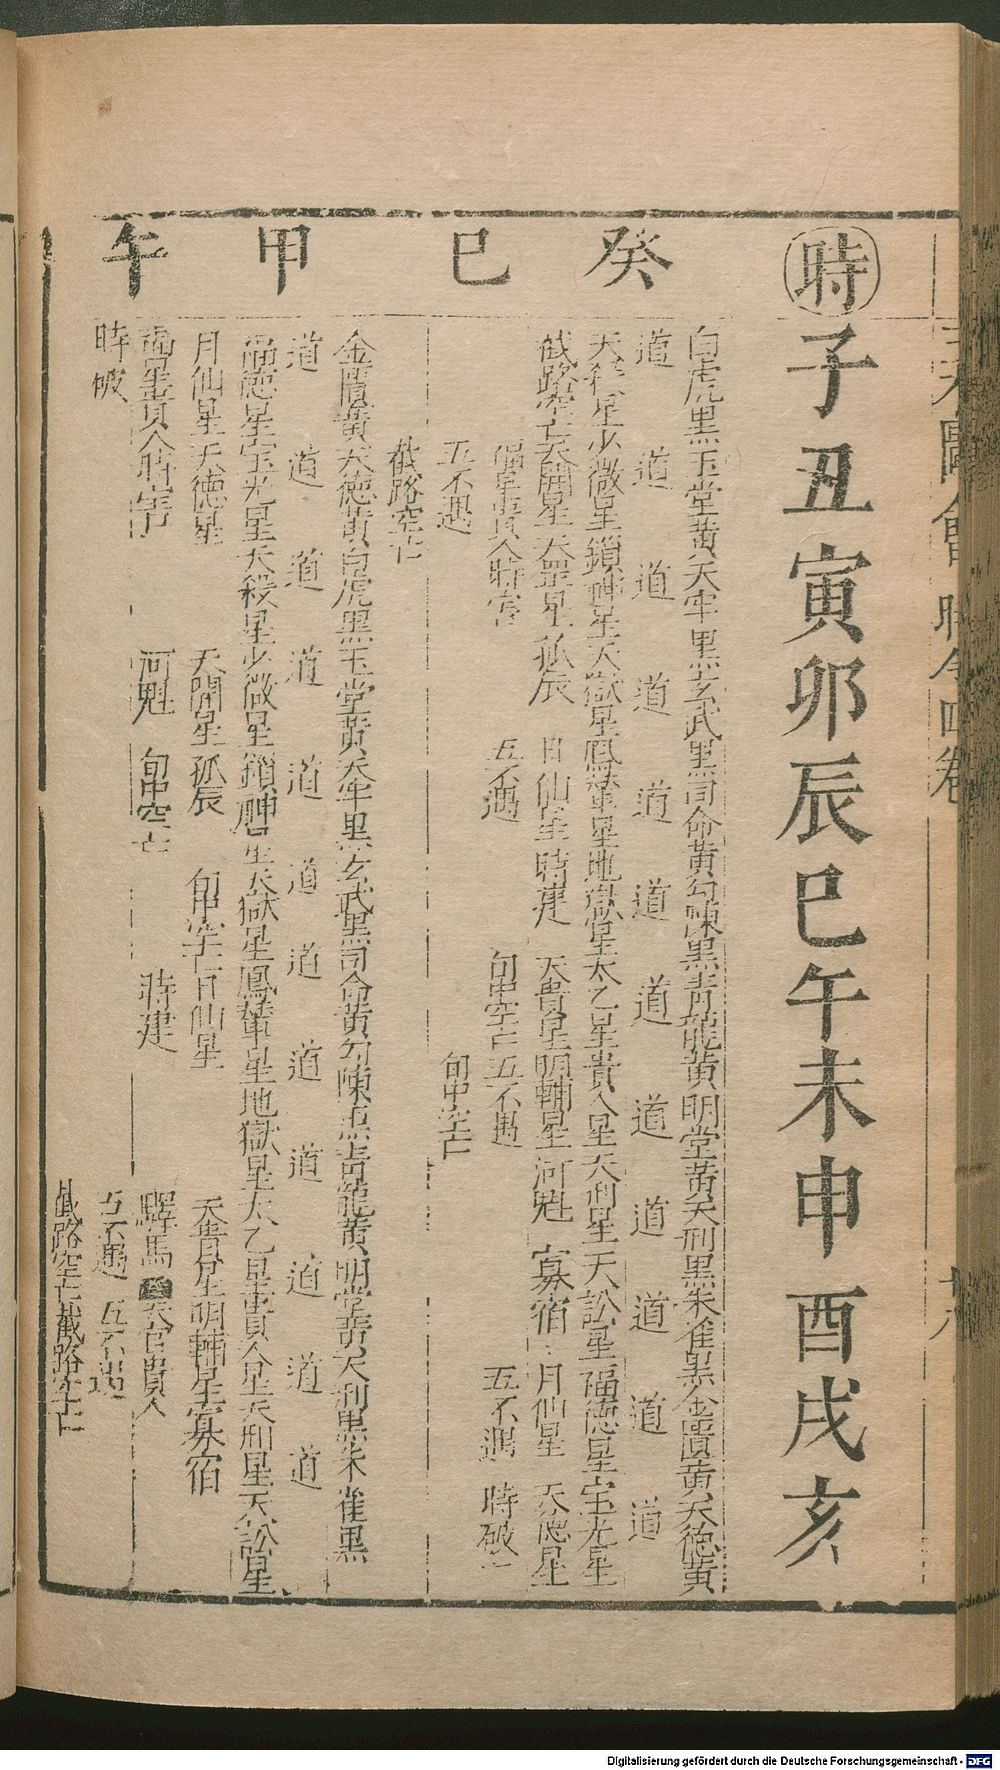 三才圖會 時令四卷
時 子 丑 寅 卯 辰 巳 午 未 申 酉 戌 亥
癸巳
白虎黑 玉堂黃 天牢黑 玄武黑 司命黃 勾陳黑 青龍黃 明堂黃 天刑黑 朱雀黑 金匱黃 天德黃
道 道 道 道 道 道 道 道 道 道 道 道
天殺星 少微星 鎖神星 天獄星 鳳輦星 地獄星 太乙星 貴人星 天刑星 天訟星 福德星 宝光星
截路空亡 天開星 天罡星 孤辰 日仙星 時建 天貴星 明輔星 河魁 寡宿 月仙星 天德星
福星貴人 時害 五不遇 旬中空亡 五不遇 五不遇 時破
五不遇 旬中空亡
截路空亡
甲午
金匱黃 天德黃 白虎黑 玉堂黃 天牢黑 玄武黑 司命黃 勾陳黑 青龍黃 明堂黃 天刑黑 朱雀黑
道 道 道 道 道 道 道 道 道 道 道 道
福德星 宝光星 天殺星 少微星 鎖神星 天獄星 鳳輦星 地獄星 太乙星 貴人星 天刑星 天訟星
月仙星 天德星 天開星 孤辰 旬中空亡 日仙星 天貴星 明輔星 寡宿
福星貴人 時害 河魁 旬中空亡 時建 驛馬 天官貴人
時破 五不遇 五不遇
截路空亡 截路空亡
Digitalisierung gefördert durch die Deutsche Forschungsgemeinschaft - DFG